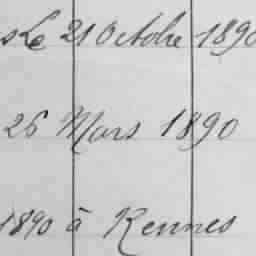 Le 21 Octobre 1890
26 Mars 1890
1890 à Rennes